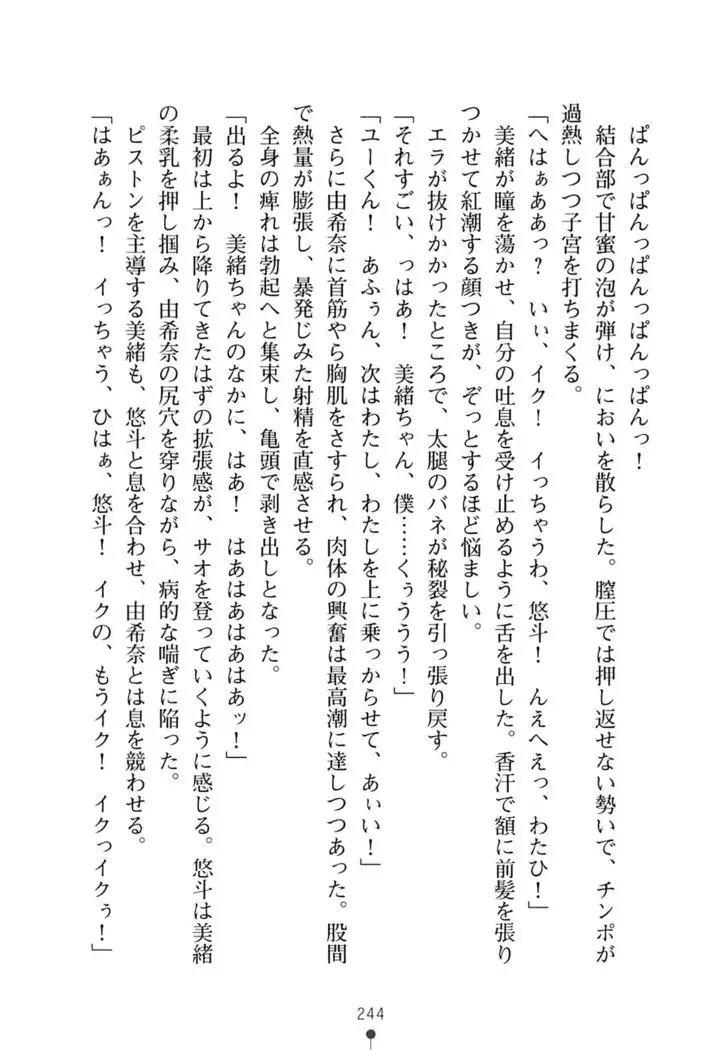 ぱんっぱんっぱんっぱんっぱんっ！
結合部で甘蜜の泡が弾け、においを散らした。膣圧では押し返せない勢いで、チンポが
過熱しつつ子宮を打ちまくる。
「へはぁああっ？　いぃ、イク！　イっちゃうわ、悠斗！　んえへえっ、わたひ！」
美緒が瞳を蕩かせ、自分の吐息を受け止めるように舌を出した。香汗で額に前髪を張り
つかせて紅潮する顔つきが、ぞっとするほど悩ましい。
エラが抜けかかったところで、太腿のバネが秘裂を引っ張り戻す。
「それすごい、っはあ！　美緒ちゃん、僕……くぅううう！」
「ユーくん！　あふぅん、次はわたし、わたしを上に乗っからせて、あぃい！」
さらに由希奈に首筋やら胸肌をさすられ、肉体の興奮は最高潮に達しつつあった。股間
で熱量が膨張し、暴発じみた射精を直感させる。
全身の痺れは勃起へと集束し、亀頭で剥き出しとなった。
「出るよ！　美緒ちゃんのなかに、はあ！　はあはあはあはあッ！」
最初は上から降りてきたはずの拡張感が、サオを登っていくように感じる。悠斗は美緒
の柔乳を押し掴み、由希奈の尻穴を穿りながら、病的な喘ぎに陥った。
ピストンを主導する美緒も、悠斗と息を合わせ、由希奈とは息を競わせる。
「はあぁんっ！　イっちゃう、ひはぁ、悠斗！　イクの、もうイク！　イクっイクぅ！」
244